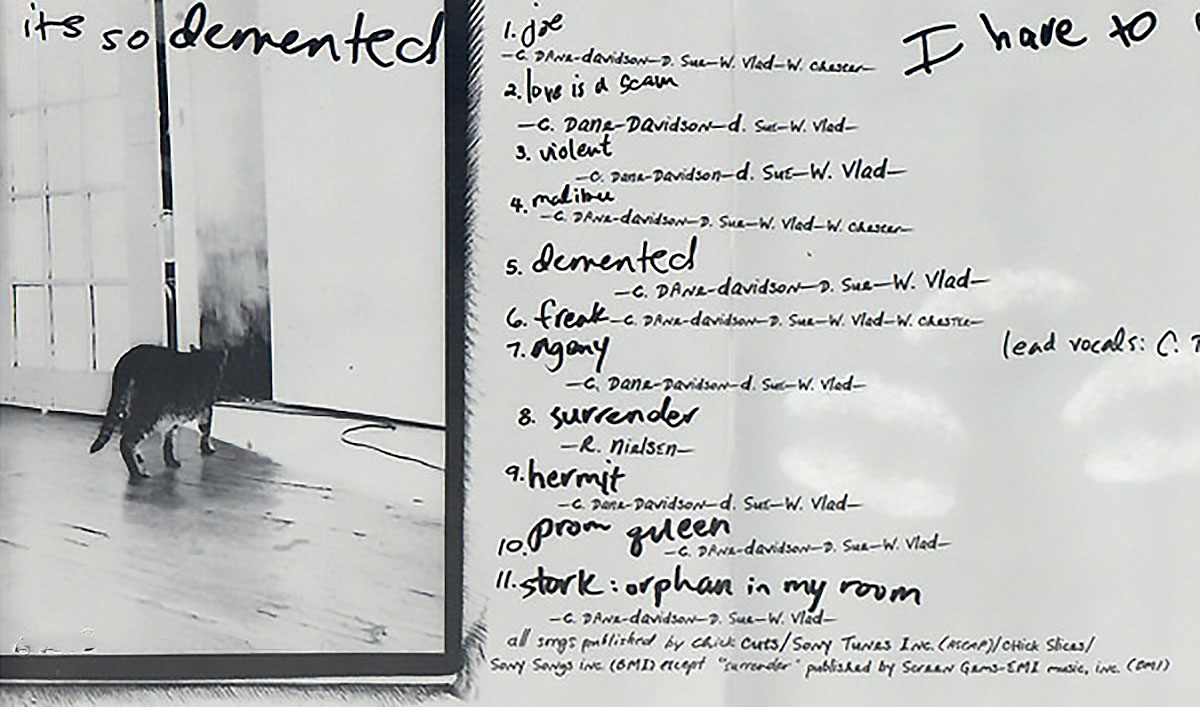 its so demented
1. joe
—C. DAna-davidson—D. Sue—W. Vlad—W. Chester—
2. love is a scam
—C. Dana-Davidson—d. Sue—W. Vlad—
3. violent
—C. Dana-Davidson—d. Sue—W. Vlad—
4. malibu
—C. DAna-davidson—D. Sue—W. Vlad—W. Chester—
5. demented
—C. DAna-davidson—D. Sue—W. Vlad—
6. freak—C. DAna-davidson—D. Sue—W. Vlad—W. Chester—
7. agony
—C. Dana-Davidson—d. Sue—W. Vlad—
8. surrender
—R. Nielsen—
9. hermit
—C. Dana-Davidson—d. Sue—W. Vlad—
10. prom queen
—C. DAna-davidson—D. Sue—W. Vlad—
11. stork: orphan in my room
—C. DAna-davidson—D. Sue—W. Vlad—
all songs published by Chick Cuts/Sony Tunes Inc. (ASCAP)/Chick Slices/
Sony Songs inc. (BMI) except "surrender" published by Screen Gems-EMI music, inc. (BMI)
I have to
lead vocals: C.